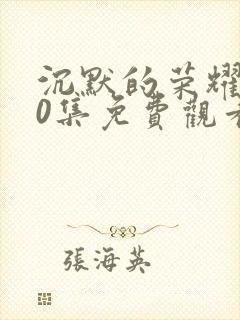 沉默的荣耀
0集免費觀看
張海英